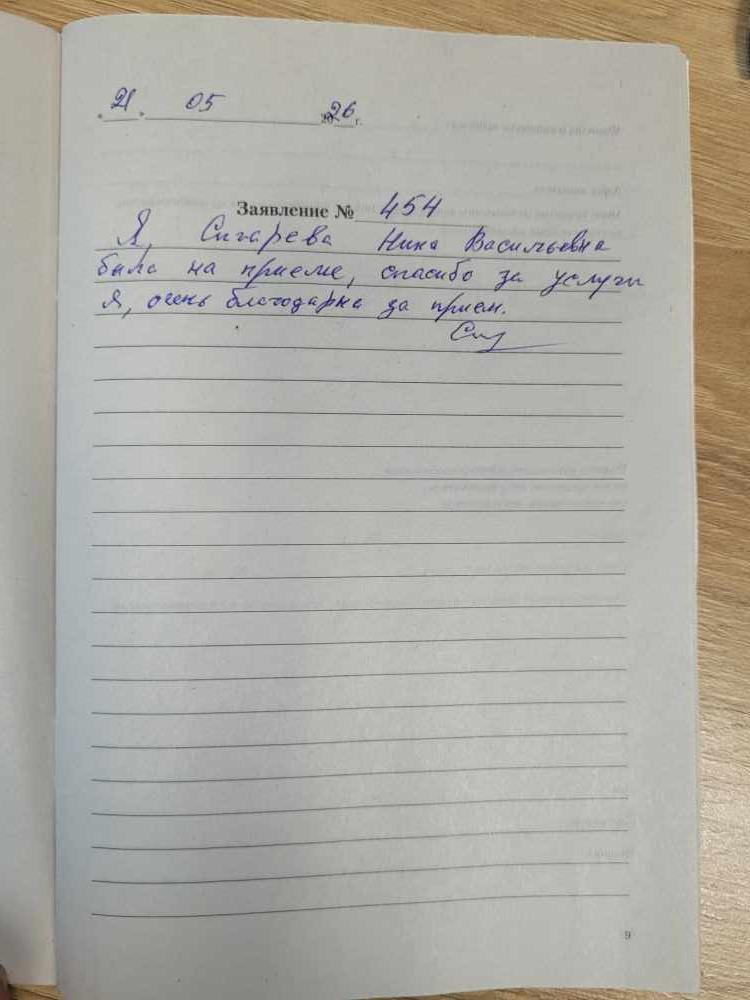 «21» 05 2026 г.
Заявление № 454
Я, Сигарева Нина Васильевна
была на приеме, спасибо за услуги
Я, очень благодарна за прием.
9